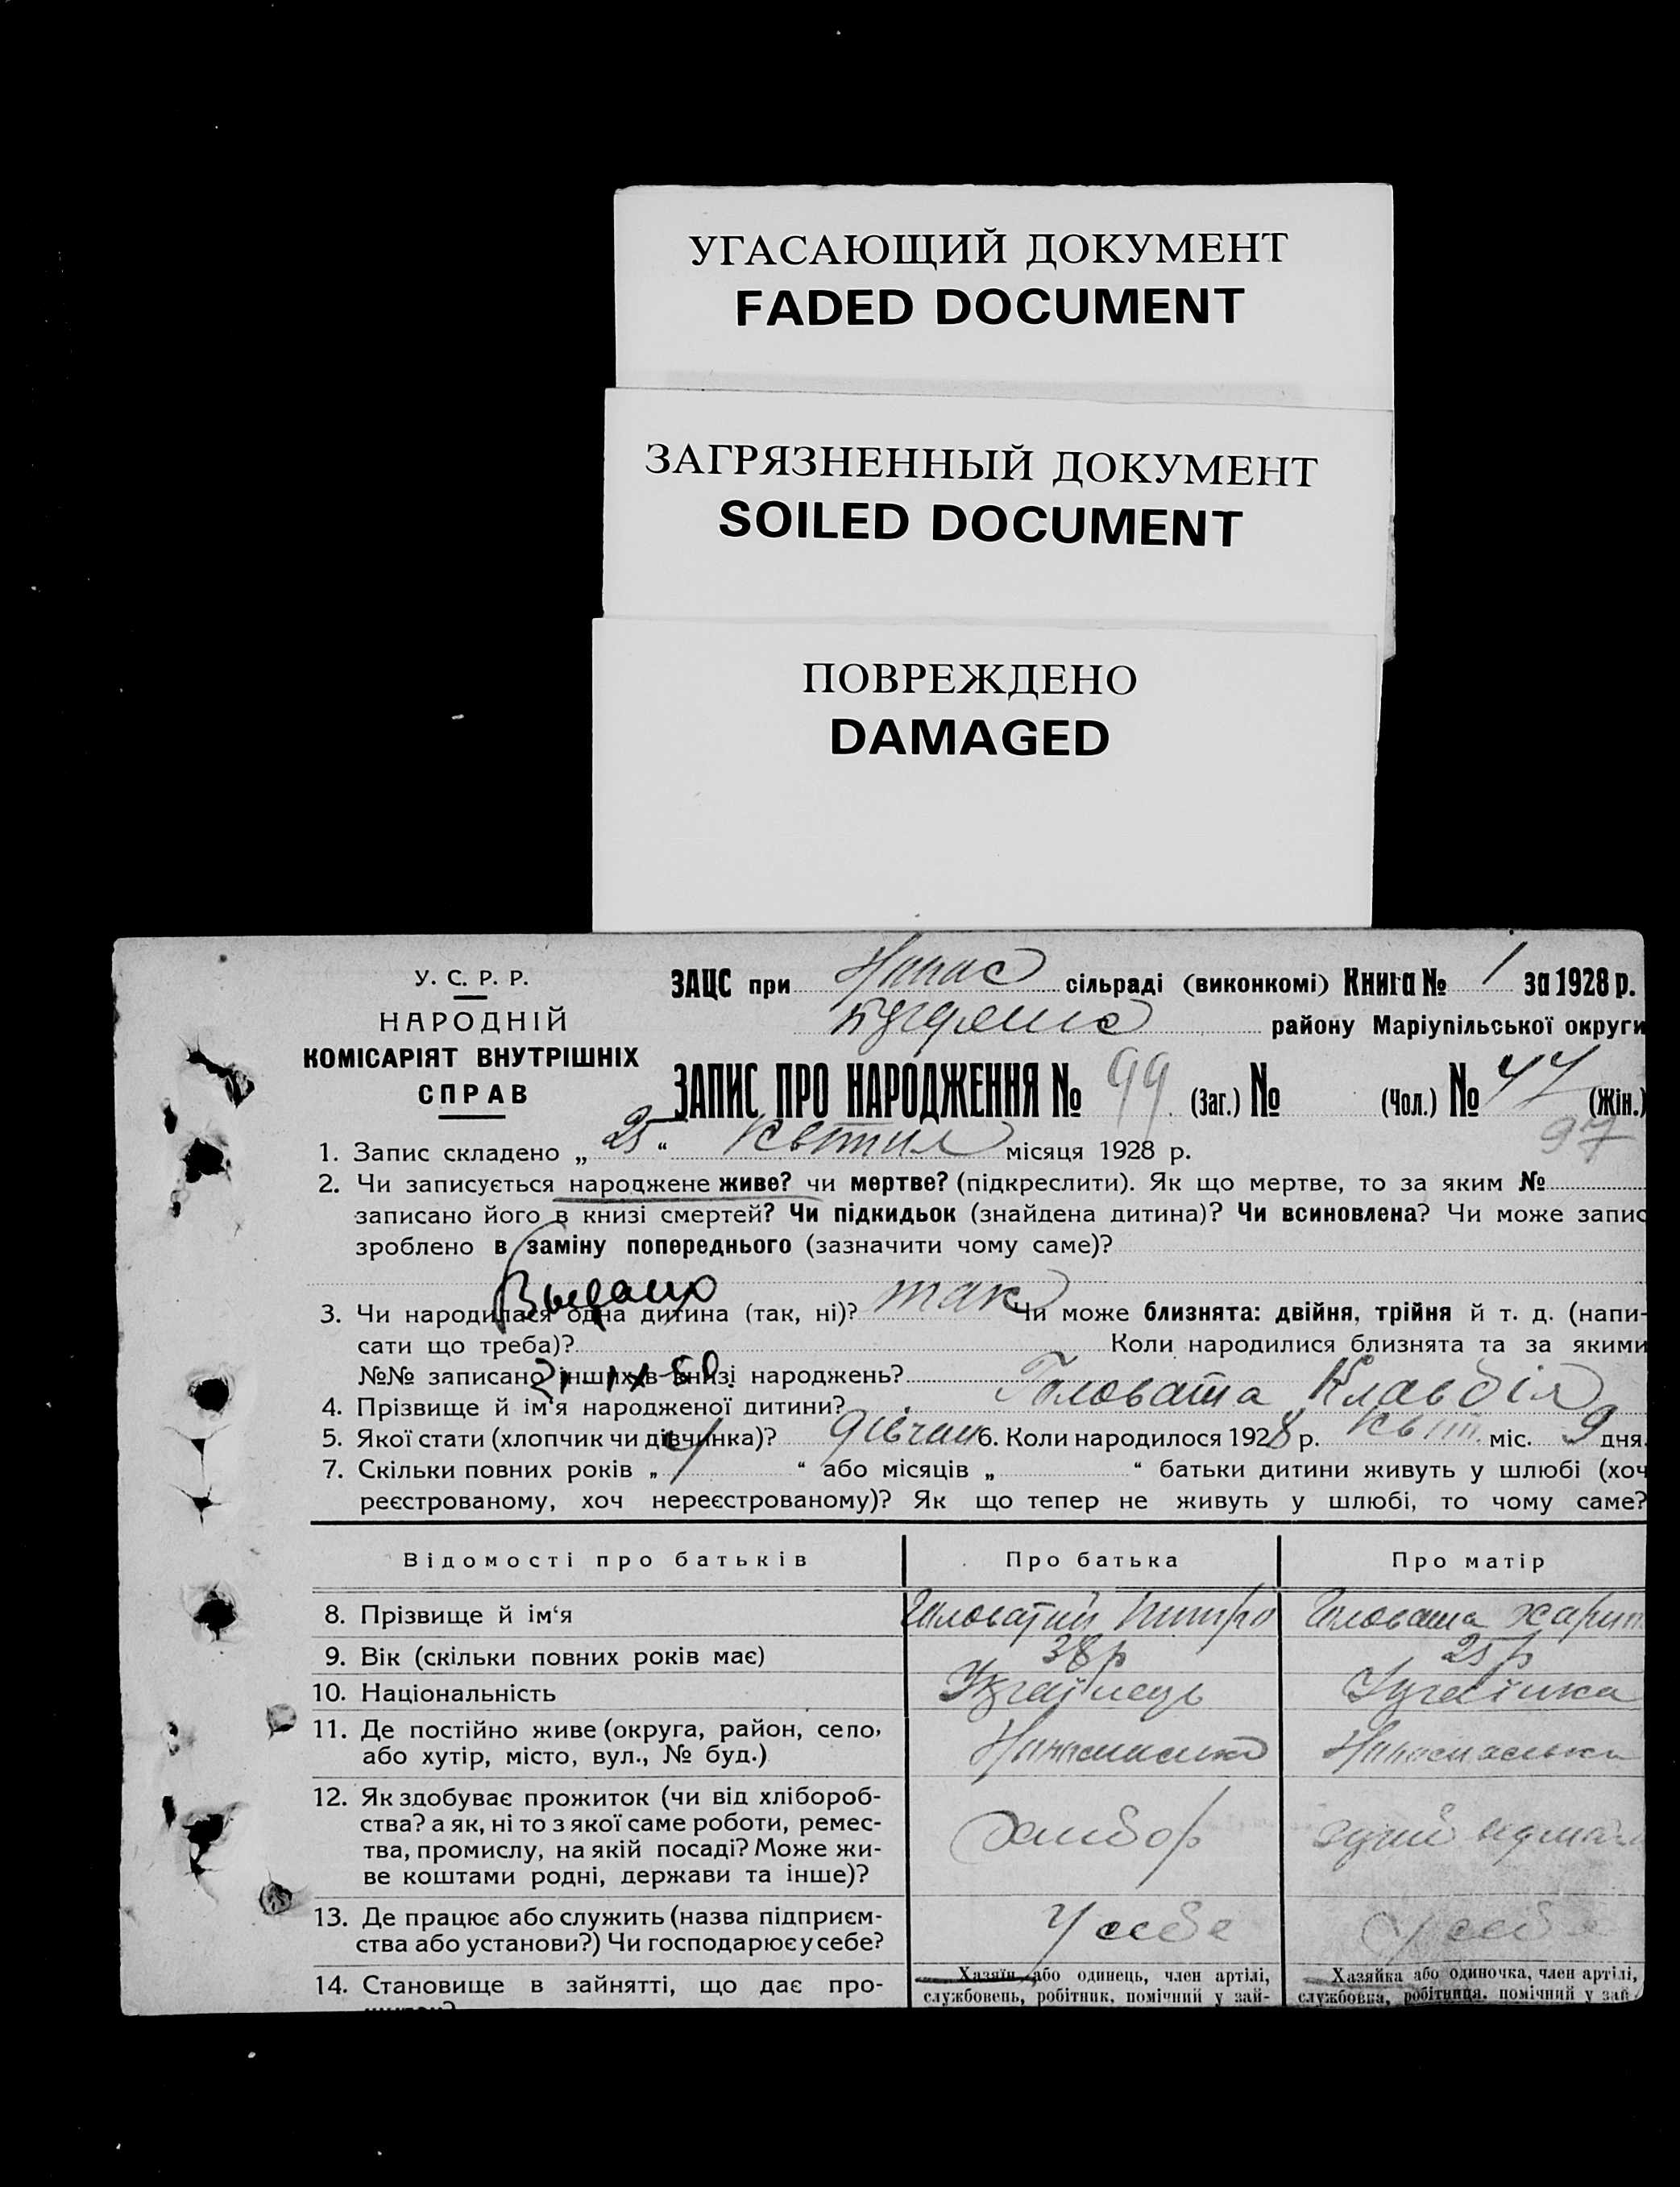 УГАСАЮЩИЙ ДОКУМЕНТ
FADED DOCUMENT
ЗАГРЯЗНЕННЫЙ ДОКУМЕНТ
SOILED DOCUMENT
ПОВРЕЖДЕНО
DAMAGED
У. С. Р. Р.
НАРОДНІЙ
КОМІСАРІЯТ ВНУТРІШНІХ
СПРАВ
ЗАЦС при сільраді (виконкомі) Книга № 1 за 1928 р.
району Маріупільської округи
ЗАПИС ПРО НАРОДЖЕННЯ № 99 (Заг.) № (Чол.) № 47 (Жін.)
97
1. Запис складено „ 25 “ Квітня місяця 1928 р.
2. Чи записується народжене живе? чи мертве? (підкреслити). Як що мертве, то за яким №
записано його в книзі смертей? Чи підкидьок (знайдена дитина)? Чи всиновлена? Чи може запис
зроблено в заміну попереднього (зазначити чому саме)?
3. Чи народилася одна дитина (так, ні)? так Чи може близнята: двійня, трійня й т. д. (напи-
сати що треба)? Коли народилися близнята та за якими
№№ записано інших в книзі народжень?
4. Прізвище й ім'я народженої дитини? Головата Клавдія
5. Якої стати (хлопчик чи дівчинка)? дівчин 6. Коли народилося 1928 р. Квіт. міс. 9 дня.
7. Скільки повних років „ “ або місяців „ “ батьки дитини живуть у шлюбі (хоч
реєстрованому, хоч нереєстрованому)? Як що тепер не живуть у шлюбі, то чому саме?
Відомості про батьків Про батька Про матір
8. Прізвище й ім‘я Головатий Головата
9. Вік (скільки повних років має) 38 р 25 р
10. Національність Українець Українка
11. Де постійно живе (округа, район, село,
або хутір, місто, вул., № буд.)
12. Як здобуває прожиток (чи від хлібороб-
ства? а як, ні то з якої саме роботи, ремес-
тва, промислу, на якій посаді? Може жи-
ве коштами родні, держави та інше)?
13. Де працює або служить (назва підприєм- У себе У себе
ства або установи?) Чи господарює у себе?
14. Становище в зайнятті, що дає про-
Хазяїн або одинець, член артілі,
службовець, робітник, помічний у зай-
Хазяйка або одиночка, член артілі,
службовка, робітниця, помічний у зай